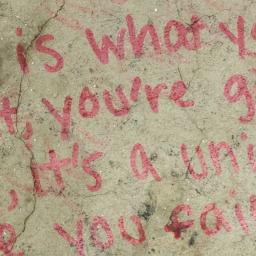 is what y
t, you're g
, it's a uni
e you fai